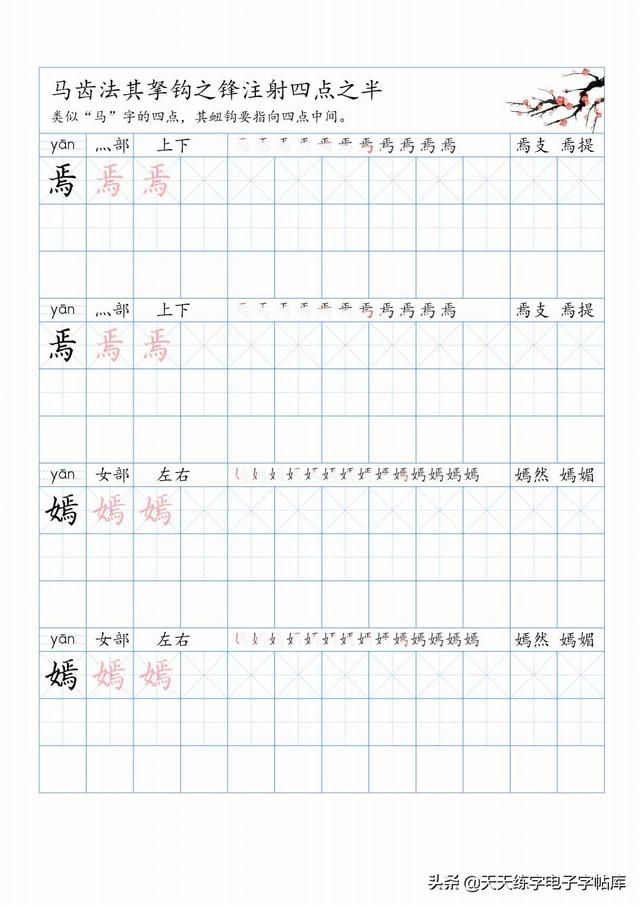 马齿法其拏钩之锋注射四点之半
类似“马”字的四点，其衄钩要指向四点中间。
yān 灬部 上下 焉支 焉提
焉 焉 焉
yān 灬部 上下 焉支 焉提
焉 焉 焉
yān 女部 左右 嫣然 嫣媚
嫣 嫣 嫣
yān 女部 左右 嫣然 嫣媚
嫣 嫣 嫣
头条 @天天练字电子字帖库